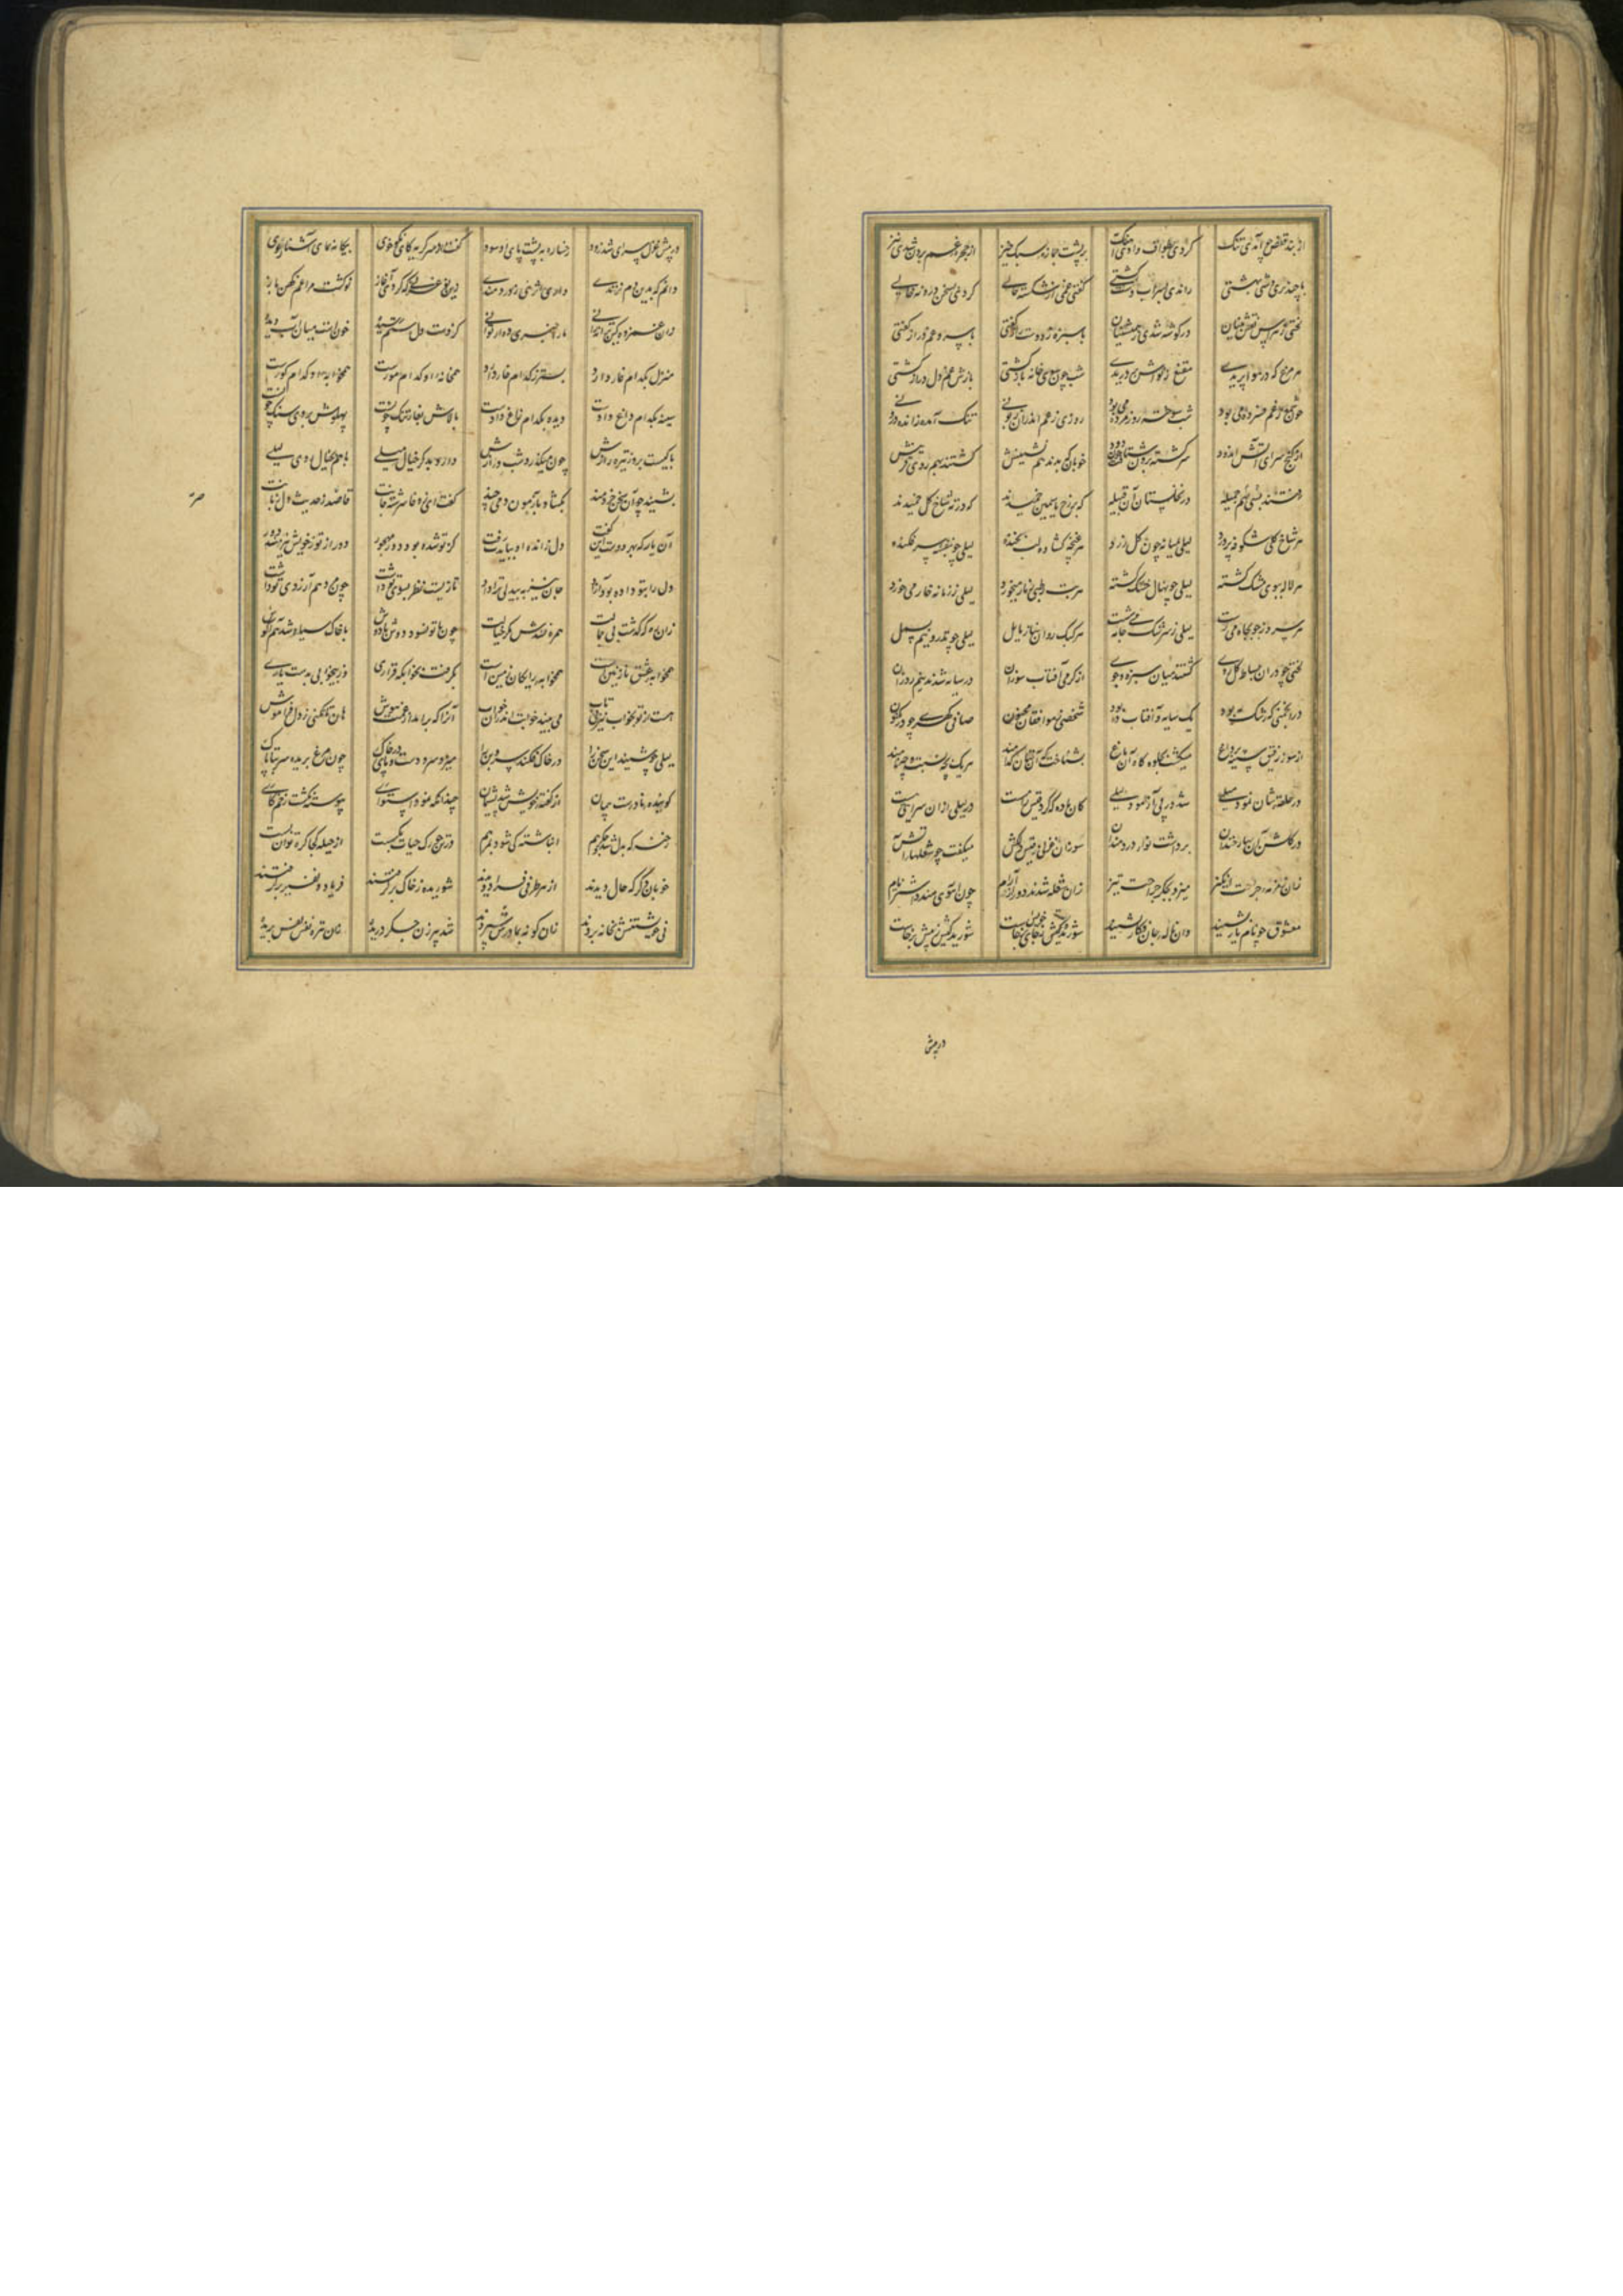 از بند قفس چو آمدی تنگ کردی بطواف وادی آهنگ بر پشت جمازه سبک خیز از حجره غم برون شدی تیز
با چند پری وش بهشتی راندی بسراب دشت کشتی گفتی غمی از شکسته حالی کردی بسخن درونه خالی
لختی ز هراس نقش بینان در گوشه شدی ز همنشینان با سبزه ز دوست راز گفتی با سرو غم دراز گفتی
هر مرغ که در هوا پریدی مقنع ز نواش بر دریدی شب چون سوی خانه بازگشتی بازش غم دل دراز گشتی
غم خورده می بود شب سوخته روز مرده می بود روزی ز غم اندران زبونی تنگ آمده ز انده درونی
از کنج سرای آتش اندود سرگشته برون شتافت چون دود خوبان که بدند همنشینش گشتند بهم روی قرینش
رفتند بسی بهم جمیله در نخلستان آن قبیله که بر رخ یاسمین خمیدند که در ته شاخ گل چمیدند
هر شاخ گلی شکوفه پرورد لیلی بمیانه چون گل زرد هر غنچه گشاده لب بخنده لیلی چو بنفشه سر فکنده
هر لاله ببوی مشک گشته لیلی چو نهال خشک گشته هر بت رطبی بناز میخورد لیلی ز زمانه خار می خورد
هر سرو ز جو بجاه می رست لیلی ز سرشک جامه می شست هر کبک روان بناز مایل لیلی چو تذرو نیم بسمل
لختی چو دران بساط گل روی گشتند میان سبزه و جوی از گرمی آفتاب سوزان در سایه شدند نیم روزان
در انجمنی که رشک مه بود یک سایه و آفتاب ده بود شخصی ز موافقان مجنون صافی گهری چو در مکنون
از سوز رفیق سینه پر داغ میگشت بجلوه گاه آن باغ بشناخت که آن بتان کدامند هر یک بچه نسبت و چه نامند
در حلقه شان نمود میلی شد در پی آزمود لیلی کان باده که گرد قیس ازو مست در لیلی ازان سرایتی هست
در گلشن آن بهار خندان برداشت نوای دردمندان سوزان غزلی ز قیس دلکش میگفت چو شعلهای آتش
زان زمزمه جراحت انگیز میزد بجگر جراحت تیز زان شعله شدند دور از آرام چون
معشوق چو نام یار بشنید وان ناله جان فگار بشنید شوریدگیش ز پیش برخاست
در پیش
در پیش غزل سرای شد زود رخساره به پشت پای او سود بیگانه نمای آشنا روی
دانم که بدین دم نژندی داری اثری ز دردمندی نو گشت مرا غم کهن باز
زان غمزده ما را خبری ده ار توانی کز دست دل ستم رسیده خون است میان آب دیده
منزل بکدام غار دارد بستر ز کدام خار دارد همخانه او کدام مورست همخوابه او کدام گورست
سینه بکدام داغ دادست دیده بکدام زاغ دادست بالاش بغار تنگ چونست پهلوش بروی سنگ چونست
با کیست بروز تیره رازش چون میگذرد شب درازش دارد بدگر خیال میلی یا هم بخیال روی لیلی
بشنید چو آن سخن خردمند بگشاد بآزمون دمی چند گفت ای ز وفا سرشته جانت قاصد ز حدیث دل زبانت
آن یار که بهر دوست این گفت دل ز انده او ببایدت سفت کز تو شده بود دور و مهجور دور از تو ز خویش نیز شد دور
دل را بتو داده بود جان نیز به بیدلی ترا داد تا زیست نظر بسوی تو داشت چون مرد هم آرزوی تو داشت
زان ره که گذشت بی جمالت همره نشدش مگر خیالت چون با تو نبود دوش بادوش با خاک سیاه شد هم آغوش
همخوابه عشق نازنین است همخوابه رایگان زمین است بگرفت بخوابگه قراری وز بیخوابی برست باری
هست از تو بخواب نیز بیتاب می بیند خوابت اندران خواب آنرا که براید از غمت هوش هان تا نکنی ز دل فراموش
لیلی چو شنید این سخن را در خاک فکند سرو بن را میزد سر و دست و پای در خاک چون مرغ بریده سر
گوینده نادرست پیمان از گفته خویش شد پشیمان چندانکه نمود استواری پیوسته نگشت زخم کاری
رخنه که بدل شد انباشته کی شود بمرهم رگ حیات بگسست از حیله کجا گره توان بست
خوبان دگر که حال دیدند از هر طرفی فرا دویدند شوریده ز خاک برگرفتند فریاد و نفیر برگرفتند
بخانه بردند زان گونه بمادرش سپردند شد پیرزن جگر دریده